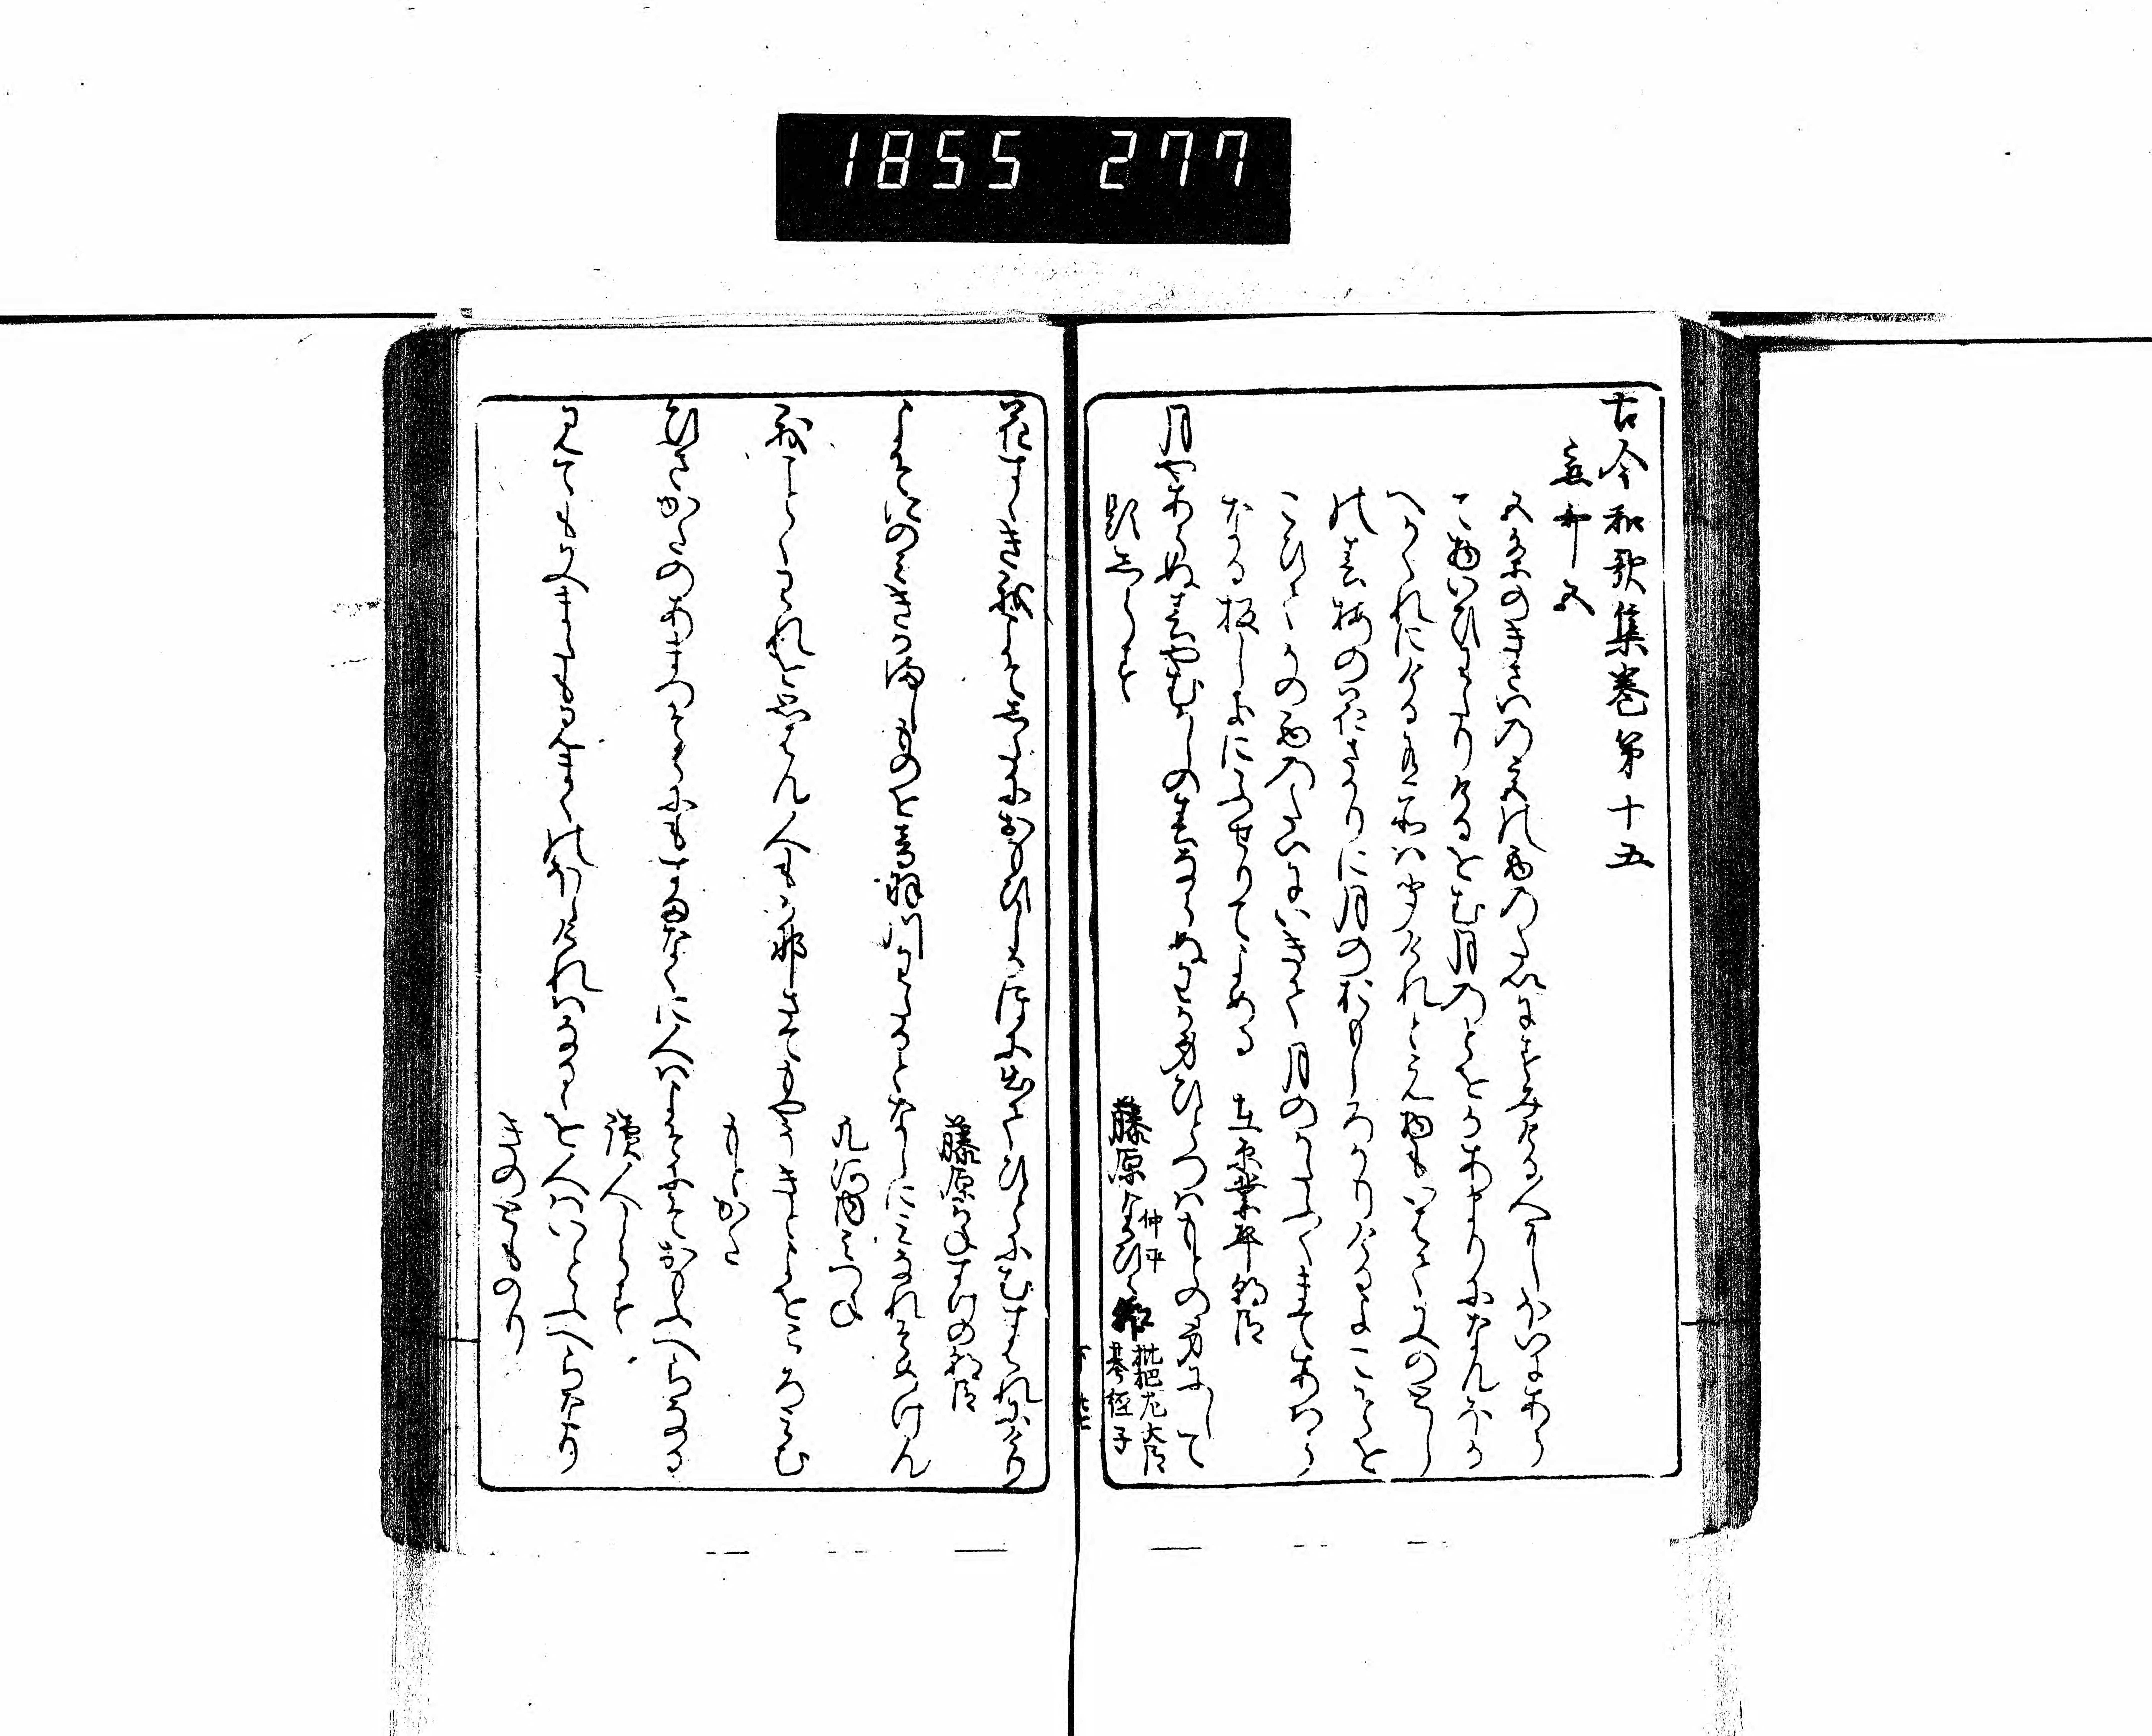 1855 277
古今和歌集巻第十五
恋哥五
五条のきさいの宮の西のたいにすみける人にほいにはあら
て物いひわたりけるをむ月のとをかあまりになんほか
へかくれにけるあり所はきゝけれとえ物もいはて又のとし
の春梅の花さかりに月のおもしろかりける夜こそを
こひてかの西のたいにいきて月のかたふくまてあはら
なる板しきにふせりてよめる 在原業平朝臣
月やあらぬ春やむかしの春ならぬわか身ひとつはもとの身にして
題しらす 藤原なかひらの朝臣
仲平
枇杷左大臣
基経子
花すゝき我こそしたにおもひしかほに出て人にむすはれにけり
藤原かねすけの朝臣
よそにのみきかまし物を音羽川わたるとなしにみなれそめけん
凡河内みつね
我ことくわれをおもはん人もかなさてもやうきとよをこゝろみむ
もとかた
ひさかたのあまつそらにもすまなくに人はよそにそおもふへらなる
読人しらす
見てもまたまたも見まくのほしけれはなるゝを人はいとふへらなり
きのとものり